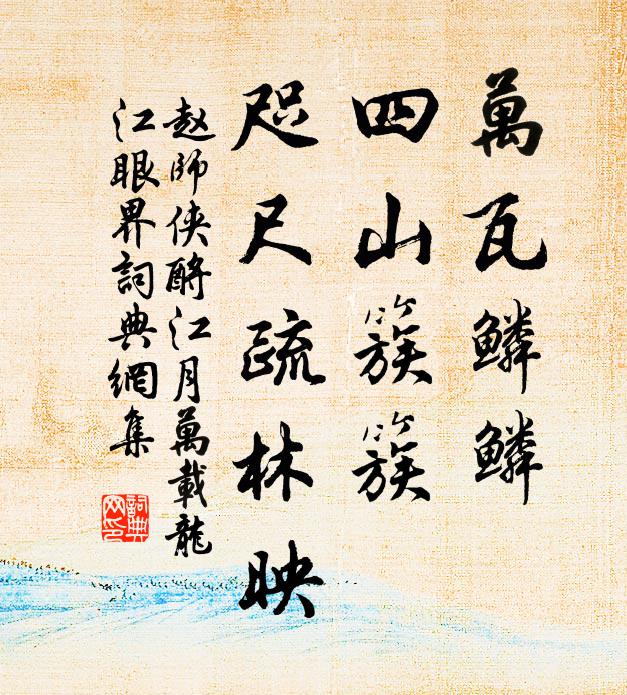 萬瓦鱗鱗
四山簇簇
咫尺疏林映
赵師侠酹江月萬載龍
江眼界詞典網集
詞典网印